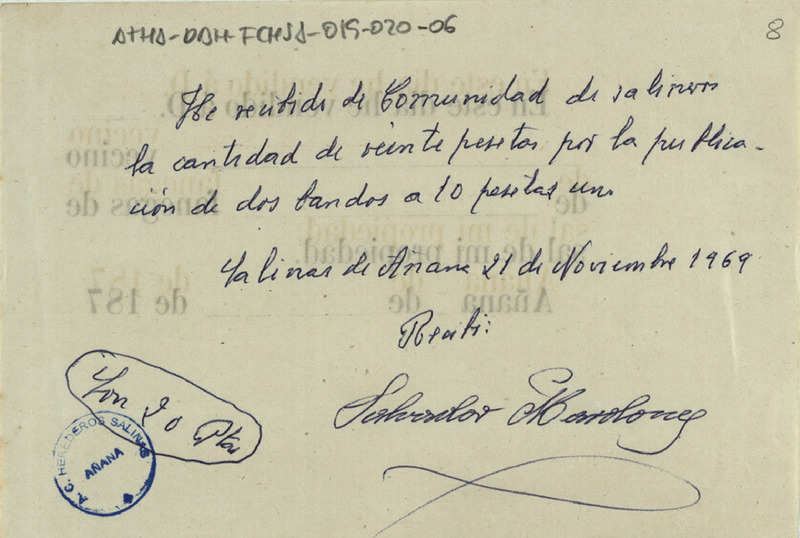 ATHA-DAH-FCHSA-019-020-06
8
He recibido de Comunidad de salineros
la cantidad de veinte pesetas por la publica-
ción de dos bandos a 10 pesetas uno
Salinas de Añana 21 de Noviembre 1969
Recibí:
Salvador Mardones
Son 20 Ptas
A.C. HEREDEROS SALINAS
AÑANA
En este dia he vendido á D.
vecino
de fanegas de
sal de mi propiedad.
Añana de de 187